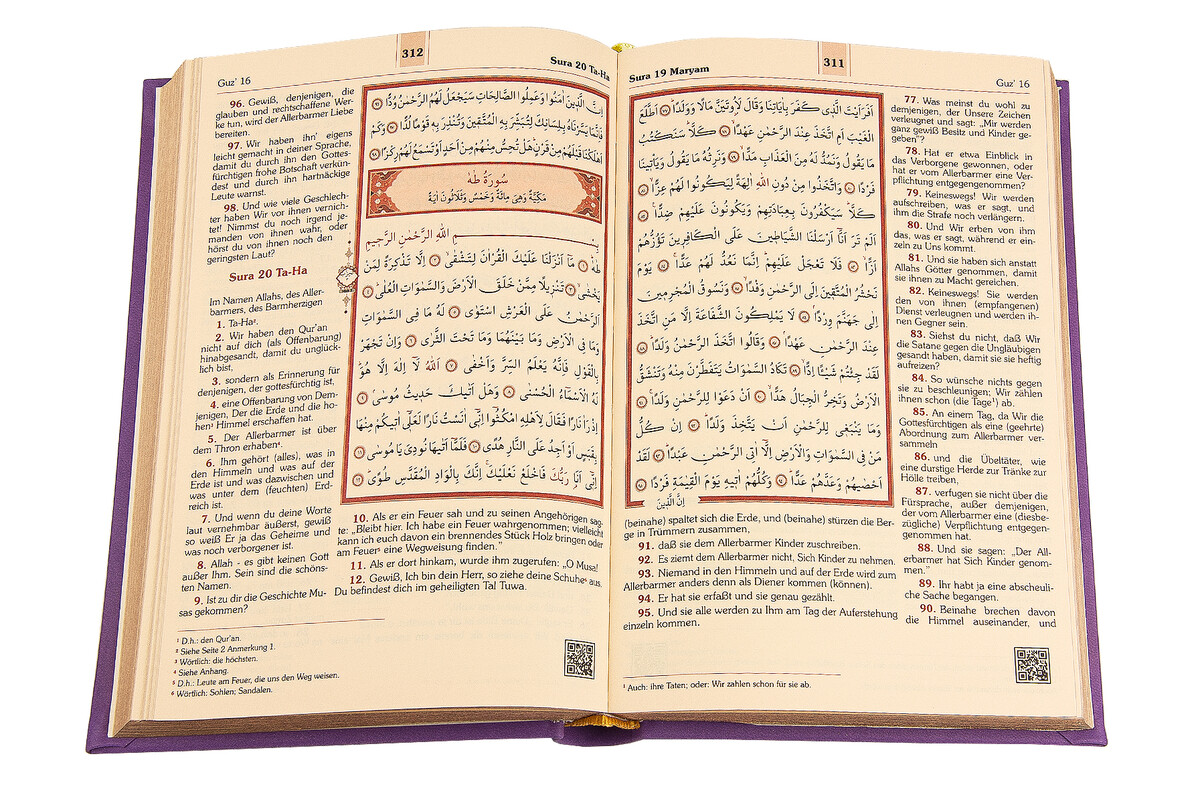 Sura 19 Maryam
311
Guz' 16
اَفَرَاَيْتَ الَّذٖى كَفَرَ بِاٰيَاتِنَا وَقَالَ لَاُوتَيَنَّ مَالًا وَوَلَدًا ﴿٧٧﴾ اَطَّلَعَ
الْغَيْبَ اَمِ اتَّخَذَ عِنْدَ الرَّحْمٰنِ عَهْدًا ﴿٧٨﴾ كَلَّا سَنَكْتُبُ
مَا يَقُولُ وَنَمُدُّ لَهُ مِنَ الْعَذَابِ مَدًّا ﴿٧٩﴾ وَنَرِثُهُ مَا يَقُولُ وَيَاْتٖينَا
فَرْدًا ﴿٨٠﴾ وَاتَّخَذُوا مِنْ دُونِ اللّٰهِ اٰلِهَةً لِيَكُونُوا لَهُمْ عِزًّا ﴿٨١﴾
كَلَّا سَيَكْفُرُونَ بِعِبَادَتِهِمْ وَيَكُونُونَ عَلَيْهِمْ ضِدًّا ﴿٨٢﴾
اَلَمْ تَرَ اَنَّا اَرْسَلْنَا الشَّيَاطٖينَ عَلَى الْكَافِرٖينَ تَؤُزُّهُمْ
اَزًّا ﴿٨٣﴾ فَلَا تَعْجَلْ عَلَيْهِمْ اِنَّمَا نَعُدُّ لَهُمْ عَدًّا ﴿٨٤﴾ يَوْمَ
نَحْشُرُ الْمُتَّقٖينَ اِلَى الرَّحْمٰنِ وَفْدًا ﴿٨٥﴾ وَنَسُوقُ الْمُجْرِمٖينَ
اِلٰى جَهَنَّمَ وِرْدًا ﴿٨٦﴾ لَا يَمْلِكُونَ الشَّفَاعَةَ اِلَّا مَنِ اتَّخَذَ
عِنْدَ الرَّحْمٰنِ عَهْدًا ﴿٨٧﴾ وَقَالُوا اتَّخَذَ الرَّحْمٰنُ وَلَدًا ﴿٨٨﴾
لَقَدْ جِئْتُمْ شَيْـًٔا اِدًّا ﴿٨٩﴾ تَكَادُ السَّمٰوَاتُ يَتَفَطَّرْنَ مِنْهُ وَتَنْشَقُّ
الْاَرْضُ وَتَخِرُّ الْجِبَالُ هَدًّا ﴿٩٠﴾ اَنْ دَعَوْا لِلرَّحْمٰنِ وَلَدًا ﴿٩١﴾
وَمَا يَنْبَغٖى لِلرَّحْمٰنِ اَنْ يَتَّخِذَ وَلَدًا ﴿٩٢﴾ اِنْ كُلُّ
مَنْ فِى السَّمٰوَاتِ وَالْاَرْضِ اِلَّا اٰتِى الرَّحْمٰنِ عَبْدًا ﴿٩٣﴾ لَقَدْ
اَحْصٰيهُمْ وَعَدَّهُمْ عَدًّا ﴿٩٤﴾ وَكُلُّهُمْ اٰتٖيهِ يَوْمَ الْقِيٰمَةِ فَرْدًا ﴿٩٥﴾
اِنَّ الَّذٖينَ
77. Was meinst du wohl zu
demjenigen, der Unsere Zeichen
verleugnet und sagt: „Mir werden
ganz gewiß Besitz und Kinder ge-
geben"?
78. Hat er etwa Einblick in
das Verborgene gewonnen, oder
hat er vom Allerbarmer eine Ver-
pflichtung entgegengenommen?
79. Keineswegs! Wir werden
aufschreiben, was er sagt, und
ihm die Strafe noch verlängern.
80. Und Wir erben von ihm
das, was er sagt, während er ein-
zeln zu Uns kommt.
81. Und sie haben sich anstatt
Allahs Götter genommen, damit
sie ihnen zu Macht gereichen.
82. Keineswegs! Sie werden
den von ihnen (empfangenen)
Dienst verleugnen und werden ih-
nen Gegner sein.
83. Siehst du nicht, daß Wir
die Satane gegen die Ungläubigen
gesandt haben, damit sie sie heftig
aufreizen?
84. So wünsche nichts gegen
sie zu beschleunigen; Wir zählen
ihnen schon (die Tage¹) ab.
85. An einem Tag, da Wir die
Gottesfürchtigen als eine (geehrte)
Abordnung zum Allerbarmer ver-
sammeln
86. und die Übeltäter, wie
eine durstige Herde zur Tränke zur
Hölle treiben,
87. verfugen sie nicht über die
Fürsprache, außer demjenigen,
der vom Allerbarmer eine (diesbe-
zügliche) Verpflichtung entgegen-
genommen hat.
88. Und sie sagen: „Der All-
erbarmer hat Sich Kinder genom-
men."
89. Ihr habt ja eine abscheuli-
che Sache begangen.
90. Beinahe brechen davon
die Himmel auseinander, und
(beinahe) spaltet sich die Erde, und (beinahe) stürzen die Ber-
ge in Trümmern zusammen,
91. daß sie dem Allerbarmer Kinder zuschreiben.
92. Es ziemt dem Allerbarmer nicht, Sich Kinder zu nehmen.
93. Niemand in den Himmeln und auf der Erde wird zum
Allerbarmer anders denn als Diener kommen (können).
94. Er hat sie erfaßt und sie genau gezählt.
95. Und sie alle werden zu Ihm am Tag der Auferstehung
einzeln kommen.
¹ Auch: ihre Taten; oder: Wir zahlen schon für sie ab.
Guz' 16
312
Sura 20 Ta-Ha
اِنَّ الَّذٖينَ اٰمَنُوا وَعَمِلُوا الصَّالِحَاتِ سَيَجْعَلُ لَهُمُ الرَّحْمٰنُ وُدًّا ﴿٩٦﴾
فَاِنَّمَا يَسَّرْنَاهُ بِلِسَانِكَ لِتُبَشِّرَ بِهِ الْمُتَّقٖينَ وَتُنْذِرَ بِهٖ قَوْمًا لُدًّا ﴿٩٧﴾ وَكَمْ
اَهْلَكْنَا قَبْلَهُمْ مِنْ قَرْنٍ هَلْ تُحِسُّ مِنْهُمْ مِنْ اَحَدٍ اَوْ تَسْمَعُ لَهُمْ رِكْزًا ﴿٩٨﴾
سُورَةُ طٰهٰ
مَكِّيَّةٌ وَهِىَ مِائَةٌ وَخَمْسٌ وَثَلَاثُونَ اٰيَةً
بِسْمِ اللّٰهِ الرَّحْمٰنِ الرَّحٖيمِ
طٰهٰ ﴿١﴾ مَا اَنْزَلْنَا عَلَيْكَ الْقُرْاٰنَ لِتَشْقٰى ﴿٢﴾ اِلَّا تَذْكِرَةً لِمَنْ
يَخْشٰى ﴿٣﴾ تَنْزٖيلًا مِمَّنْ خَلَقَ الْاَرْضَ وَالسَّمٰوَاتِ الْعُلٰى ﴿٤﴾
اَلرَّحْمٰنُ عَلَى الْعَرْشِ اسْتَوٰى ﴿٥﴾ لَهُ مَا فِى السَّمٰوَاتِ
وَمَا فِى الْاَرْضِ وَمَا بَيْنَهُمَا وَمَا تَحْتَ الثَّرٰى ﴿٦﴾ وَاِنْ تَجْهَرْ
بِالْقَوْلِ فَاِنَّهُ يَعْلَمُ السِّرَّ وَاَخْفٰى ﴿٧﴾ اَللّٰهُ لَا اِلٰهَ اِلَّا هُوَ
لَهُ الْاَسْمَاءُ الْحُسْنٰى ﴿٨﴾ وَهَلْ اَتٰيكَ حَدٖيثُ مُوسٰى ﴿٩﴾
اِذْ رَاٰ نَارًا فَقَالَ لِاَهْلِهِ امْكُثُوا اِنّٖى اٰنَسْتُ نَارًا لَعَلّٖى اٰتٖيكُمْ مِنْهَا
بِقَبَسٍ اَوْ اَجِدُ عَلَى النَّارِ هُدًى ﴿١٠﴾ فَلَمَّا اَتٰيهَا نُودِىَ يَا مُوسٰى ﴿١١﴾
اِنّٖى اَنَا رَبُّكَ فَاخْلَعْ نَعْلَيْكَ اِنَّكَ بِالْوَادِ الْمُقَدَّسِ طُوًى ﴿١٢﴾
96. Gewiß, denjenigen, die
glauben und rechtschaffene Wer-
ke tun, wird der Allerbarmer Liebe
bereiten.
97. Wir haben ihn' eigens
leicht gemacht in deiner Sprache,
damit du durch ihn den Gottes-
fürchtigen frohe Botschaft verkün-
dest und durch ihn hartnäckige
Leute warnst.
98. Und wie viele Geschlech-
ter haben Wir vor ihnen vernich-
tet! Nimmst du noch irgend je-
manden von ihnen wahr, oder
hörst du von ihnen noch den
geringsten Laut?
Sura 20 Ta-Ha
Im Namen Allahs, des Aller-
barmers, des Barmherzigen
1. Ta-Ha².
2. Wir haben den Qur'an
nicht auf dich (als Offenbarung)
hinabgesandt, damit du unglück-
lich bist,
3. sondern als Erinnerung für
denjenigen, der gottesfürchtig ist,
4. eine Offenbarung von Dem-
jenigen, Der die Erde und die ho-
hen³ Himmel erschaffen hat.
5. Der Allerbarmer ist über
dem Thron erhaben⁴.
6. Ihm gehört (alles), was in
den Himmeln und was auf der
Erde ist und was dazwischen und
was unter dem (feuchten) Erd-
reich ist.
7. Und wenn du deine Worte
laut vernehmbar äußerst, gewiß
so weiß Er ja das Geheime und
was noch verborgener ist.
8. Allah - es gibt keinen Gott
außer Ihm. Sein sind die schöns-
ten Namen.
9. Ist zu dir die Geschichte Mu-
sas gekommen?
10. Als er ein Feuer sah und zu seinen Angehörigen sag-
te: „Bleibt hier. Ich habe ein Feuer wahrgenommen; vielleicht
kann ich euch davon ein brennendes Stück Holz bringen oder
am Feuer⁵ eine Wegweisung finden."
11. Als er dort hinkam, wurde ihm zugerufen: „O Musa!
12. Gewiß, Ich bin dein Herr, so ziehe deine Schuhe⁶ aus.
Du befindest dich im geheiligten Tal Tuwa.
¹ D.h.: den Qur'an.
² Siehe Seite 2 Anmerkung 1.
³ Wörtlich: die höchsten.
⁴ Siehe Anhang.
⁵ D.h.: Leute am Feuer, die uns den Weg weisen.
⁶ Wörtlich: Sohlen; Sandalen.